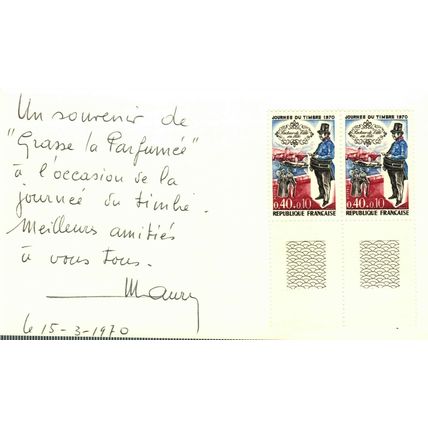 Un souvenir de
"Grasse la Parfumée"
à l'occasion de la
journée du timbre.
Meilleurs amitiés
à vous tous.
Maury
le 15-3-1970
JOURNÉE DU TIMBRE 1970
Facteur de Ville
en 1830
0,40+0,10
REPUBLIQUE FRANÇAISE
JOURNÉE DU TIMBRE 1970
Facteur de Ville
en 1830
0,40+0,10
REPUBLIQUE FRANÇAISE